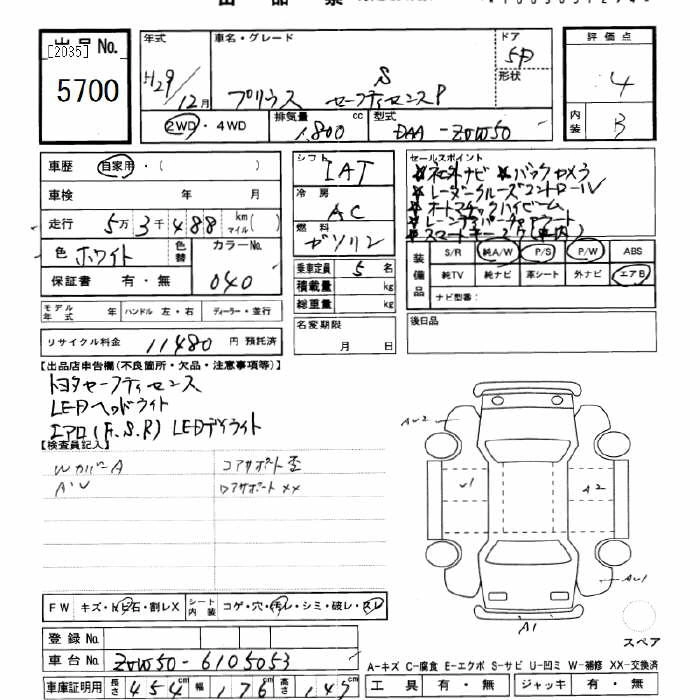 [2035]
出品 No.
5700
年式
H29/12月
車名・グレード
プリウス S セーフティセンスP
ドア
5D
形状
評価点
4
内装
B
2WD・4WD
排気量
1,800 cc
型式
DAA-ZVW50
車歴 自家用・( )
車検 年 月
走行 5万3千488 km マイル( )
色 ホワイト
色替
カラーNo.
040
保証書 有・無
シフト
IAT
冷房
AC
燃料
ガソリン
乗車定員 5 名
積載量 kg
総重量 kg
セールスポイント
ナビ ★バックカメラ
★レーダークルーズコントロール
★オートマチックハイビーム
★スマートキー
装備品
S/R 純A/W P/S P/W ABS
純TV 純ナビ 革シート 外ナビ エアB
ナビ型番:
モデル年式 年 ハンドル 左・右 ディーラー・並行
リサイクル料金 11480 円 預託済
名変期限
月 日
後日品
【出品店申告欄(不良箇所・欠品・注意事項等)】
トヨタセーフティセンス
LEDヘッドライト
エアロ(F.S.R) LEDデイライト
【検査員記入】
WカバーA コアサポート歪
AU ロアサポートXX
AU2
U1
A2
AU1
A1
スペア
FW キズ・トビ石・割レX シート内装 コゲ・穴・汚レ・シミ・破レ・スレ
登録No.
車台No. ZVW50-6105053
車庫証明用 長さ 454 cm 幅 176 cm 高さ 147 cm
A-キズ C-腐食 E-エクボ S-サビ U-凹ミ W-補修 XX-交換済
工具 有・無 ジャッキ 有・無